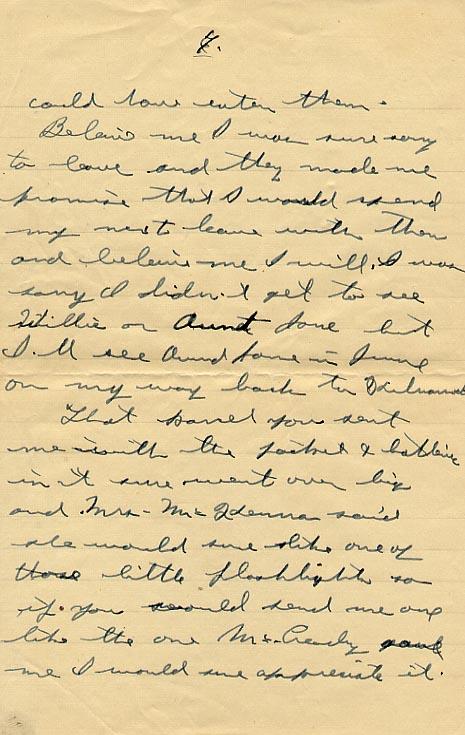 7.
could have eaten them.
Beleive me I was sure sorry
to leave and they made me
promise that I would spend
my next leave with them
and beleive me I will. I was
sorry I didn't get to see
Willie or Aunt Jane but
I'll see Aunt Jane in June
on my way back to
That parcel you sent
me with the jacket & batteries
in it sure went over big
and Mrs. Mc said
she would sure like one of
those little flashlights so
if you would send me one
like the one Mc.Cready gave
me I would sure appreciate it.